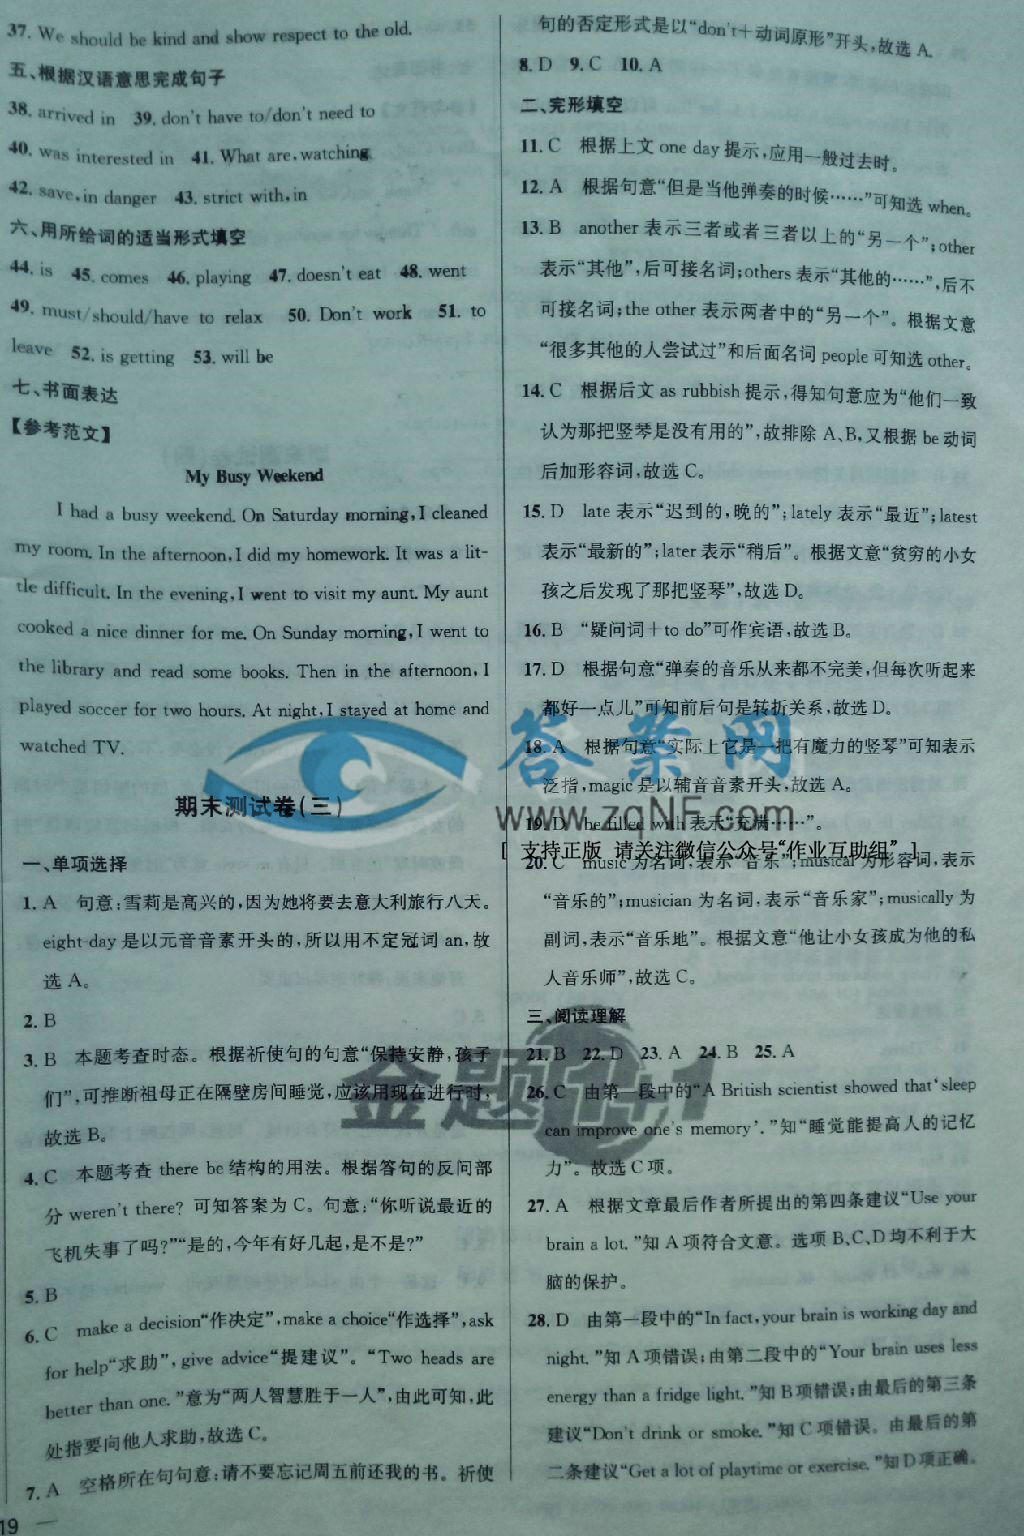 37. We should be kind and show respect to the old.
五、根据汉语意思完成句子
38. arrived in 39. don't have to/don't need to
40. was interested in 41. What are, watching
42. save, in danger 43. strict with, in
六、用所给词的适当形式填空
44. is 45. comes 46. playing 47. doesn't eat 48. went
49. must/should/have to relax 50. Don't work 51. to
leave 52. is getting 53. will be
七、书面表达
【参考范文】
My Busy Weekend
I had a busy weekend. On Saturday morning, I cleaned
my room. In the afternoon, I did my homework. It was a lit-
tle difficult. In the evening, I went to visit my aunt. My aunt
cooked a nice dinner for me. On Sunday morning, I went to
the library and read some books. Then in the afternoon, I
played soccer for two hours. At night, I stayed at home and
watched TV.
期末测试卷(三)
一、单项选择
1. A 句意:雪莉是高兴的,因为她将要去意大利旅行八天。
eight-day是以元音音素开头的,所以用不定冠词an,故
选A。
2. B
3. B 本题考查时态。根据祈使句的句意“保持安静,孩子
们”,可推断祖母正在隔壁房间睡觉,应该用现在进行时,
故选B。
4. C 本题考查there be结构的用法。根据答句的反问部
分weren't there? 可知答案为C。句意:“你听说最近的
飞机失事了吗?”“是的,今年有好几起,是不是?”
5. B
6. C make a decision“作决定”,make a choice“作选择”,ask
for help“求助”,give advice“提建议”。“Two heads are
better than one.”意为“两人智慧胜于一人”,由此可知,此
处指要向他人求助,故选C。
7. A 空格所在句句意:请不要忘记周五前还我的书。祈使
19
句的否定形式是以“don't+动词原形”开头,故选A.
8. D 9. C 10. A
二、完形填空
11. C 根据上文one day提示,应用一般过去时。
12. A 根据句意“但是当他弹奏的时候……”可知选when。
13. B another表示三者或者三者以上的“另一个”;other
表示“其他”,后可接名词;others表示“其他的……”,后不
可接名词;the other表示两者中的“另一个”。根据文意
“很多其他的人尝试过”和后面名词people可知选other。
14. C 根据后文as rubbish提示,得知句意应为“他们一致
认为那把竖琴是没有用的”,故排除A、B,又根据be动词
后加形容词,故选C。
15. D late表示“迟到的,晚的”;lately表示“最近”;latest
表示“最新的”;later表示“稍后”。根据文意“贫穷的小女
孩之后发现了那把竖琴”,故选D。
16. B “疑问词+to do”可作宾语,故选B。
17. D 根据句意“弹奏的音乐从来都不完美,但每次听起来
都好一点儿”可知前后句是转折关系,故选D。
18. A 根据句意“实际上它是一把有魔力的竖琴”可知表示
泛指,magic是以辅音音素开头,故选A。
19. D be filled with表示“充满……”。
20. C music为名词,表示“音乐”;musical为形容词,表示
“音乐的”;musician为名词,表示“音乐家”;musically为
副词,表示“音乐地”。根据文意“他让小女孩成为他的私
人音乐师”,故选C。
三、阅读理解
21. B 22. D 23. A 24. B 25. A
26. C 由第一段中的“A British scientist showed that‘sleep
can improve one's memory’.”知“睡觉能提高人的记忆
力”。故选C项。
27. A 根据文章最后作者所提出的第四条建议“Use your
brain a lot.”知A项符合文意。选项B、C、D均不利于大
脑的保护。
28. D 由第一段中的“In fact, your brain is working day and
night.”知A项错误;由第二段中的“Your brain uses less
energy than a fridge light.”知B项错误;由最后的第三条
建议“Don't drink or smoke.”知C项错误。由最后的第
二条建议“Get a lot of playtime or exercise.”知D项正确。
答案网
www.zqNF.com
[ 支持正版 请关注微信公众号“作业互助组” ]
金题1+1